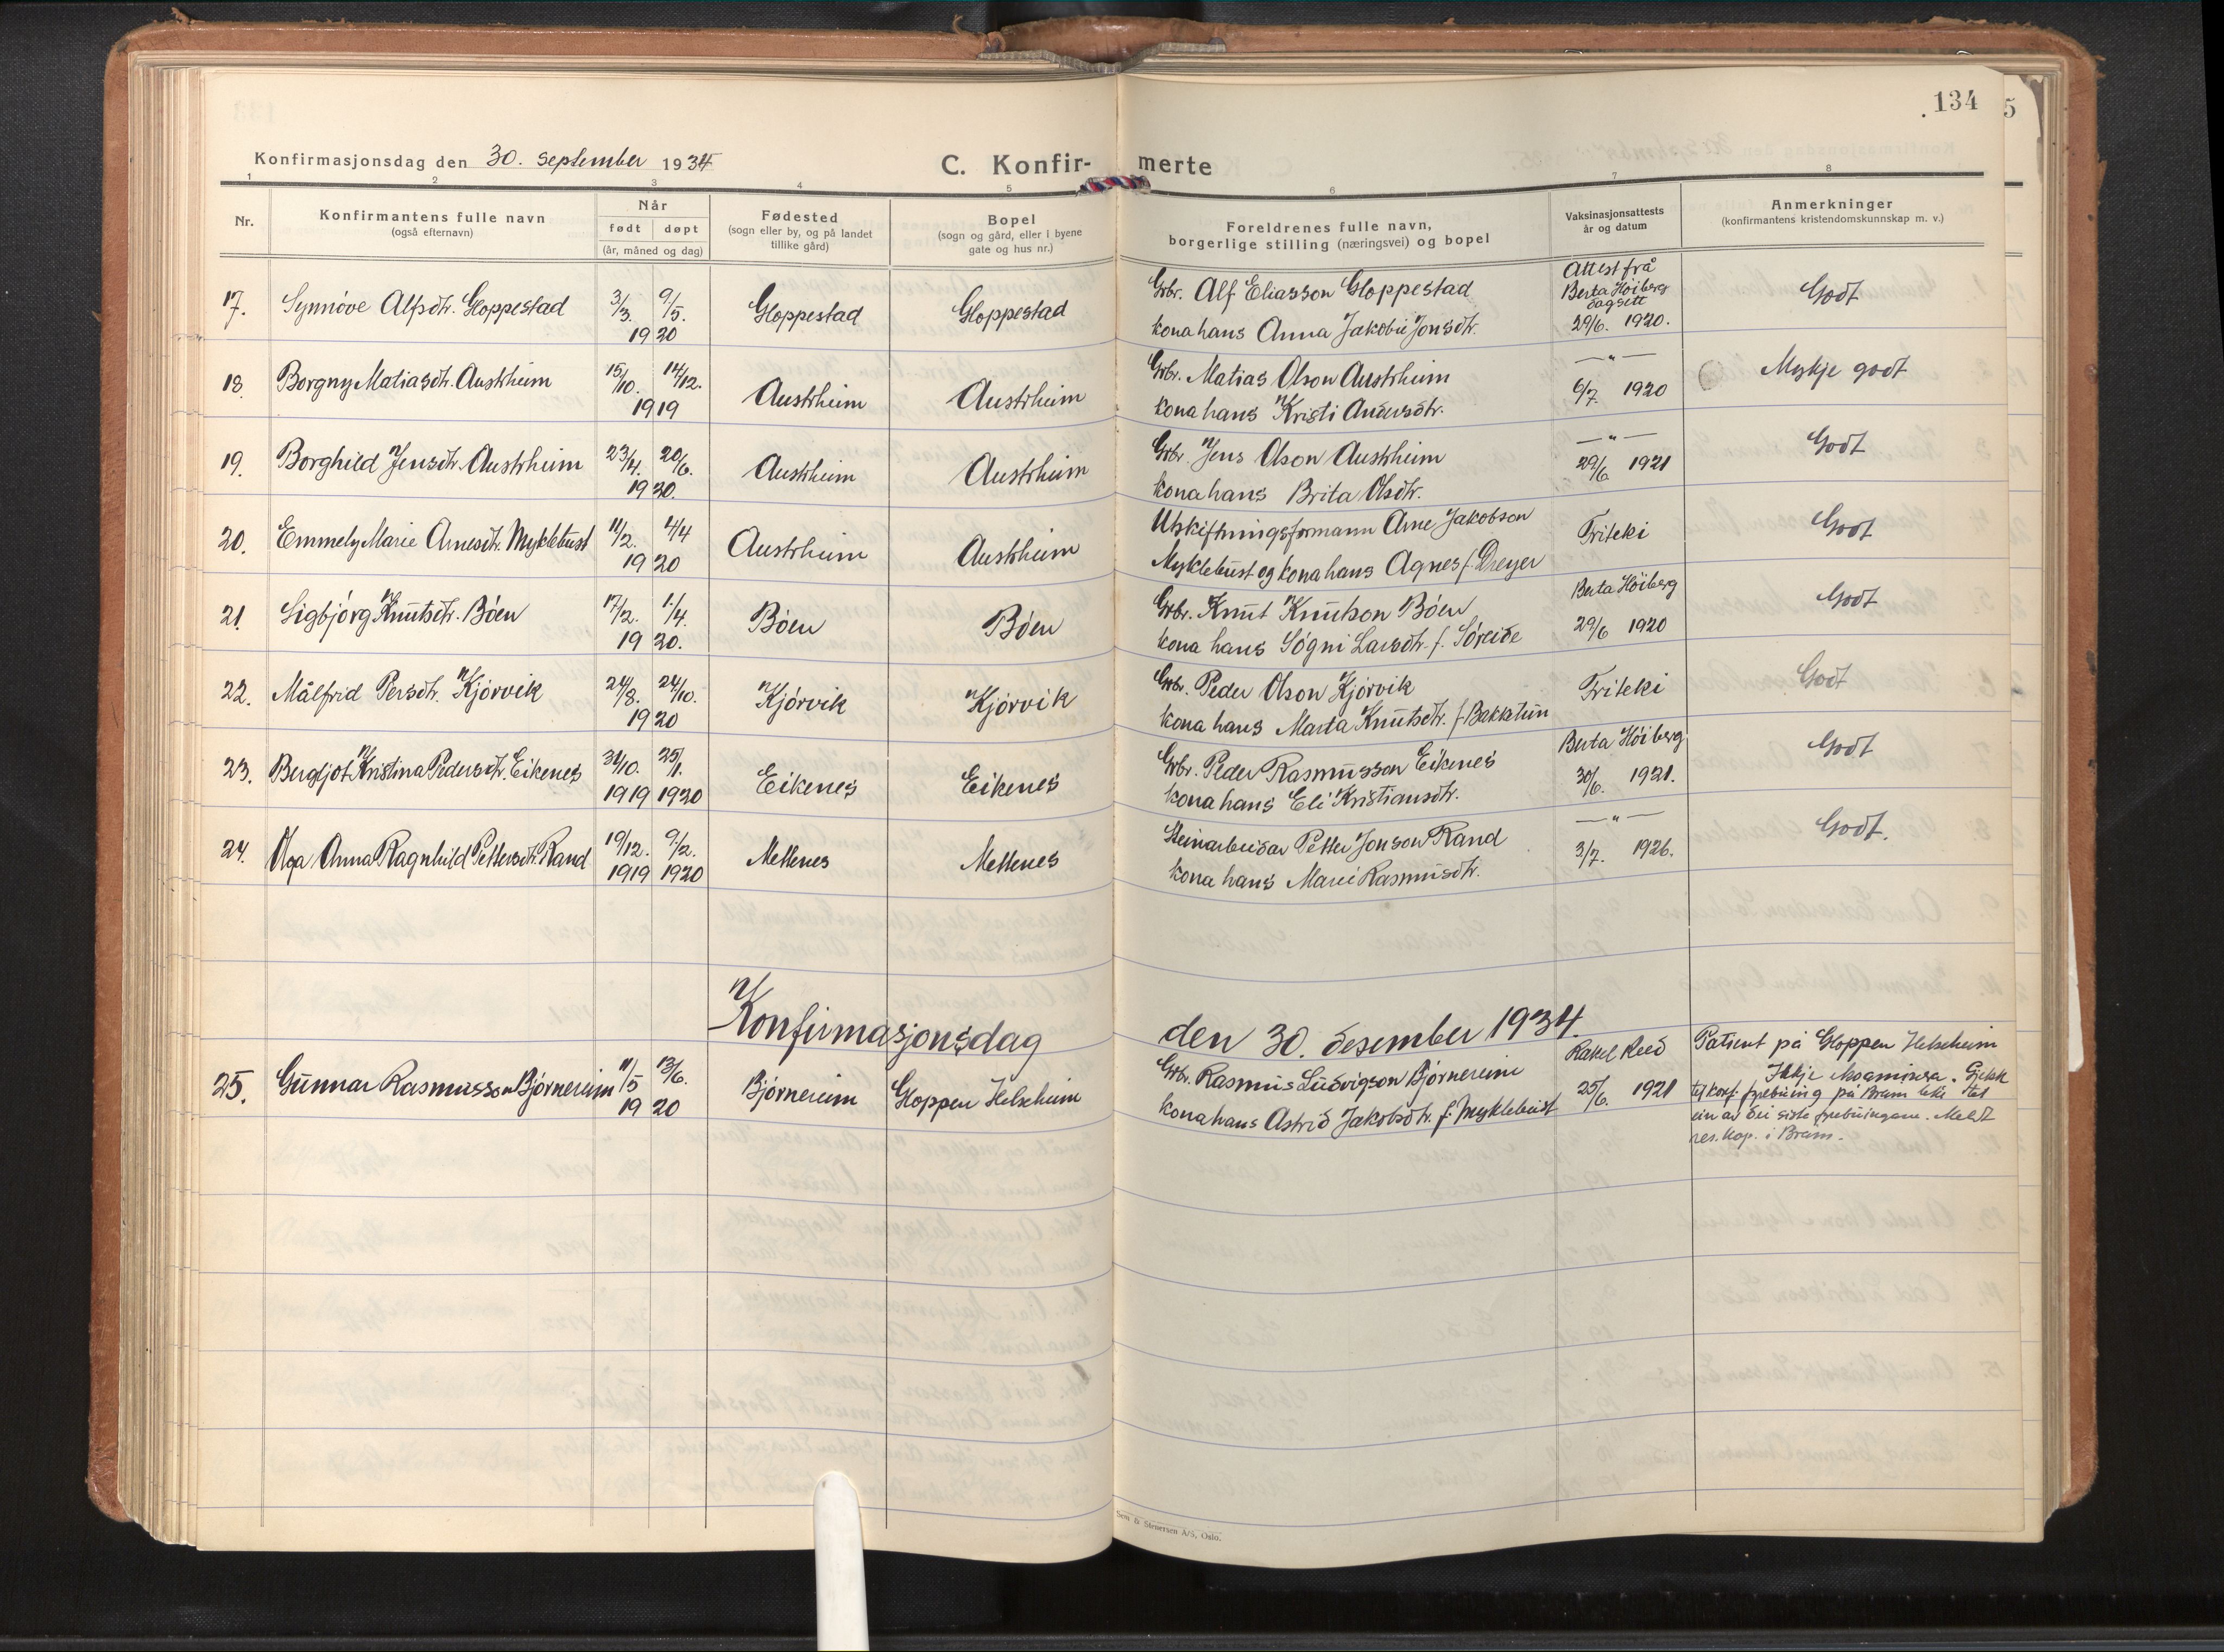 134
5
Konfirmasjonsdag den 30. september 1934
C. Konfir- merte
1 2 3 4 5 6 7 8
Nr.
Konfirmantens fulle navn
(også efternavn)
Når
født døpt
(år, måned og dag)
Fødested
(sogn eller by, og på landet
tillike gård)
Bopel
(sogn og gård, eller i byene
gate og hus nr.)
Foreldrenes fulle navn,
borgerlige stilling (næringsvei) og bopel
Vaksinasjonsattests
år og datum
Anmerkninger
(konfirmantens kristendomskunnskap m. v.)
17. Synnöve Alfsdtr. Gloppestad 3/3. 9/5. 1920 Gloppestad Gloppestad
Grbr. Alf Eliasson Gloppestad
kona hans Anna Jakobie Jonsdtr.
Attest frå
Berta Höiberg
dagsett
29/6. 1920.
Godt
18. Borgny Matiasdtr. Austrheim 15/10. 14/12. 1919 Austrheim Austrheim
Grbr. Matias Olson Austrheim
kona hans Kristi Andersdtr.
—"—
6/7. 1920
Mykje godt
19. Borghild Jensdtr. Austrheim 23/4. 20/6. 1920. Austrheim Austrheim
Grbr. Jens Olson Austrheim
kona hans Brita Olsdtr.
—"—
29/6 1921
Godt
20. Emmely Marie Arnesdtr. Myklebust 11/2. 4/4 1920 Austrheim Austrheim
Utskiftningsformann Arne Jakobson
Myklebust og kona hans Agnes f. Dreyer
Friteki
Godt
21. Sigbjörg Knutsdtr. Böen 17/2. 1/4. 1920. Böen Böen
Grbr. Knut Knutson Böen
kona hans Sögni Larsdtr. f. Söreide
Berta Höiberg
29/6 1920
Godt
22. Målfrid Persdtr. Kjörvik 24/8. 24/10. 1920 Kjörvik Kjörvik
Grbr. Peder Olson Kjörvik
kona hans Marta Knutsdtr. f. Bakketun
Friteki
Godt
23. Bergljot Kristina Pedersdtr. Eikenes 31/10. 25/1. 1919 1920 Eikenes Eikenes
Grbr. Peder Rasmusson Eikenes
kona hans Eli Kristiansdtr.
Berta Höiberg
30/6. 1921.
Godt
24. Olga Anna Ragnhild Pettersdtr. Rand 19/12. 9/2. 1919 1920 Mettenes Mettenes
Steinarbeidar Petter Jonson Rand
kona hans Marie Rasmusdtr.
—"—
3/7. 1926.
Godt.
Konfirmasjonsdag den 30. desember 1934.
25. Gunnar Rasmusson Björnereim 11/5 13/6. 1920 Björnereim Gloppen Helseheim
Grbr. Rasmus Ludvigson Björnereim
kona hans Astrid Jakobsdtr. f. Myklebust
Rakel Reed
25/6. 1921
Patient på Gloppen Helseheim
Ikkje eksaminera. Gjekk
til konf. fyrebuing på Breim
ein av dei siste fyrebuingane. Meldt
res. kap. i Breim.
Sem & Stenersen A/S, Oslo.